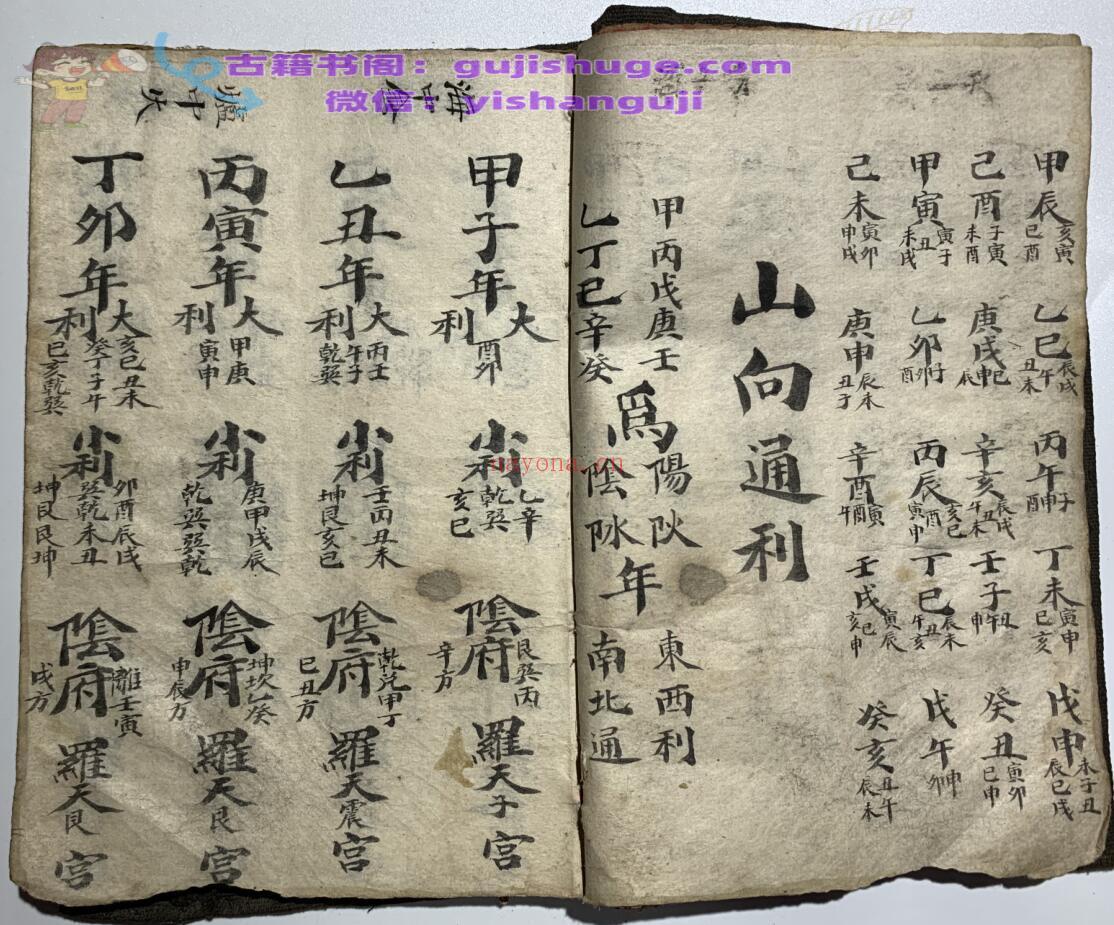 古籍书阁：gujishuge.com
微信：yishanguji
nayona.cn
甲辰 亥寅 巳酉
乙巳 辰戌 午 丑未
丙午 子 申 酉
丁未 寅申 巳亥
戊申 未子丑 辰巳戌
己酉 子寅 未酉
庚戌 巳 申 辰
辛亥 辰戌 丑 午未
壬子 丑 午 申
癸丑 寅卯 巳申
甲寅 寅子 丑 未戌
乙卯 子 卯 酉
丙辰 亥巳 酉 寅申
丁巳 辰未 丑 午亥
戊午 申 卯
己未 寅卯 申戌
庚申 辰未 丑子
辛酉 寅 酉 午
壬戌 寅辰 巳 亥申
癸亥 丑午 辰未
山向通利
甲丙戊庚壬
乙丁巳辛癸
為
陽
陰
年
東西利
南北通
海中金
甲子年 大利 酉卯
小利 乙辛 乾巽 亥巳
陰府 艮巽丙 辛方
羅天子宮
乙丑年 大利 丙壬 午子 乾巽
小利 壬丙丑未 坤艮亥巳
陰府 乾兌甲丁 巳丑方
羅天震宮
爐中火
丙寅年 大利 甲庚 寅申
小利 庚甲戌辰 乾巽巽乾
陰府 坤坎乙癸 申辰方
羅天艮宮
丁卯年 大利 亥巳丑未 癸丁子午 巳亥乾巽
小利 卯酉辰戌 巽乾未丑 坤艮艮坤
陰府 離壬寅 戌方
羅天艮宮